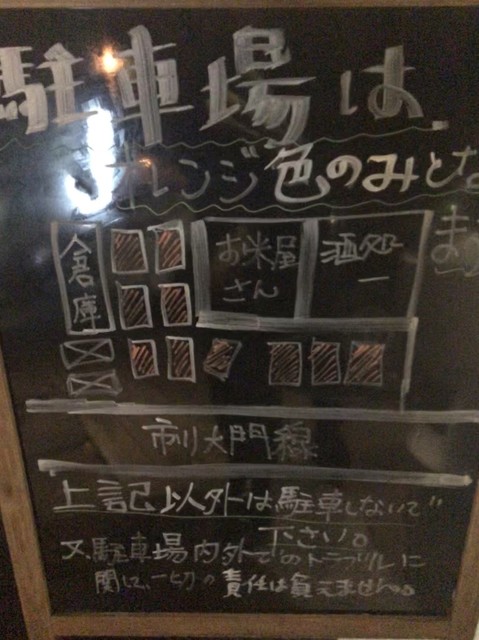 駐車場は
オレンジ色のみとな
お米屋さん
酒処一
倉庫
大門線
上記以外は駐車しないで
下さい。
又、駐車場内外でのトラブルに
関して、一切の責任は負えません。